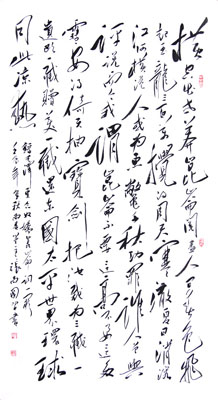 横空出世莽昆仑阅尽人间春色飞
起玉龙三百万搅得周天寒彻夏日消溶
江河横溢人或为鱼鳖千秋功罪谁人曾与
评说而今我谓昆仑不要这高不要这多
雪安得倚天抽宝剑把汝裁为三截一
截遗欧一截赠美一截还东国太平世界环球
同此凉热